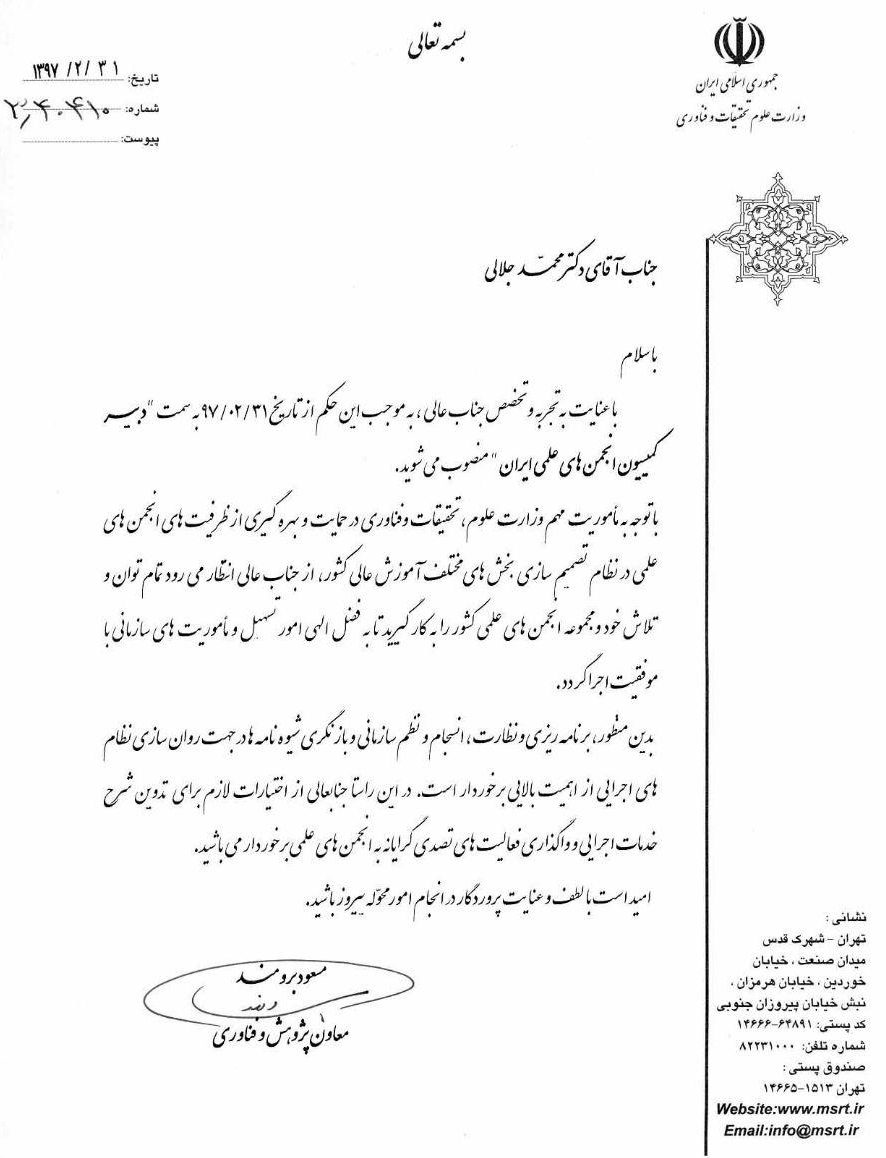 بسمه تعالی
جمهوری اسلامی ایران
وزارت علوم تحقیقات و فناوری
تاریخ: ۱۳۹۷/۲/۳۱
شماره: ۲/۴۰۴۱۰
پیوست:
جناب آقای دکتر محمّد جلالی
با سلام
با عنایت به تجربه و تخصص جناب عالی، به موجب این حکم از تاریخ ۹۷/۰۲/۳۱ به سمت "دبیر
کمیسیون انجمن های علمی ایران" منصوب می شوید.
با توجه به مأموریت مهم وزارت علوم، تحقیقات و فناوری در حمایت و بهره گیری از ظرفیت های انجمن های
علمی در نظام تصمیم سازی بخش های مختلف آموزش عالی کشور، از جناب عالی انتظار می رود تمام توان و
تلاش خود و مجموعه انجمن های علمی کشور را به کار گیرید تا به فضل الهی امور تسهیل و مأموریت های سازمانی با
موفقیت اجرا گردد.
بدین منظور، برنامه ریزی و نظارت، انسجام و نظم سازمانی و بازنگری شیوه نامه ها در جهت روان سازی نظام
های اجرایی از اهمیت بالایی برخوردار است. در این راستا جنابعالی از اختیارات لازم برای تدوین شرح
خدمات اجرایی و واگذاری فعالیت های تصدی گرایانه به انجمن های علمی برخوردار می باشید.
امید است با لطف و عنایت پروردگار در انجام امور محوّله پیروز باشید.
مسعود برومند
معاون پژوهش و فناوری
نشانی :
تهران - شهرک قدس
میدان صنعت ، خیابان
خوردین ، خیابان هرمزان ،
نبش خیابان پیروزان جنوبی
کد پستی: ۶۴۸۹۱-۱۴۶۶۶
شماره تلفن: ۸۲۲۳۱۰۰۰
صندوق پستی :
تهران ۱۵۱۳-۱۴۶۶۵
Website:www.msrt.ir
Email:info@msrt.ir